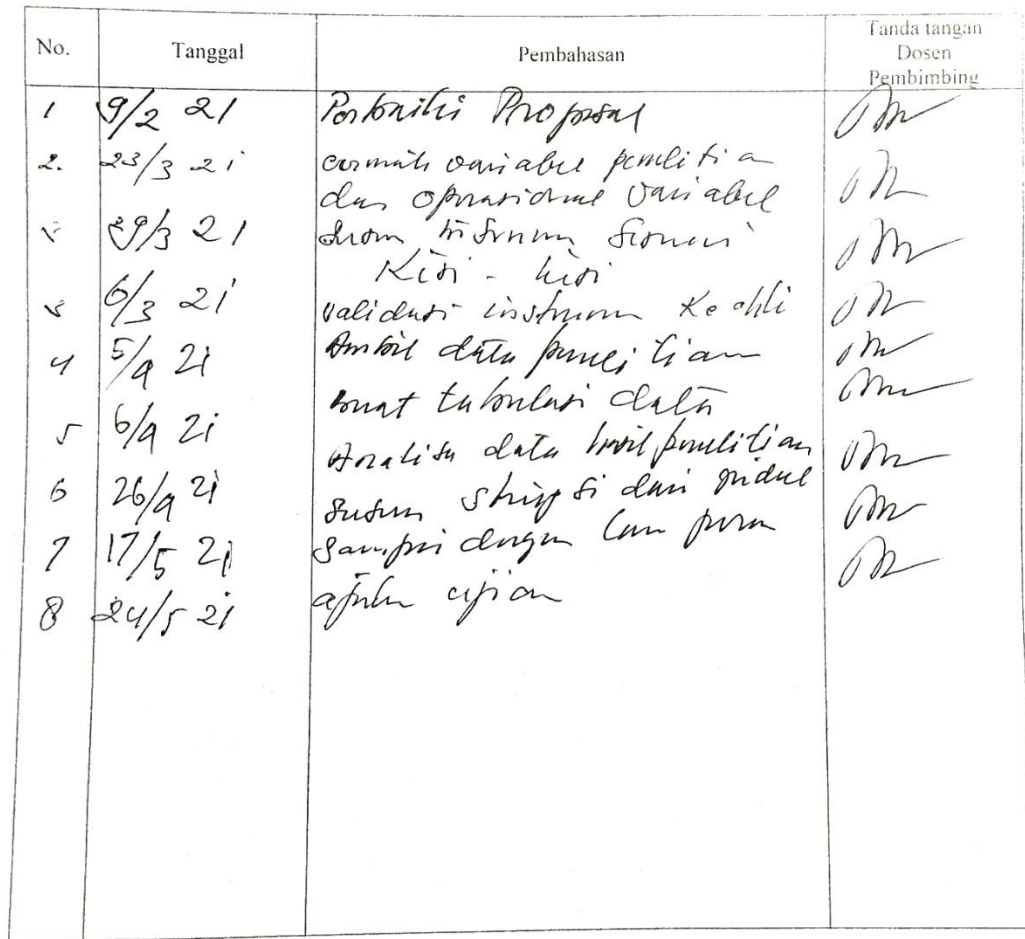 No. Tanggal Pembahasan Tanda tangan
Dosen
Pembimbing
1 9/2 21 Perbaiki Proposal
2. 23/3 21 cermati variabel penelitian
dan operasional variabel
29/3 21 susun instrumen sesuai
Kisi - kisi
6/3 21 validasi instrumen Ke ahli
4 5/4 21 Ambil data penelitian
buat tabulasi data
5 6/4 21 Analisa data hasil penelitian
6 26/4 21 susun skripsi dari judul
7 17/5 21 sampai dengan
8 24/5 21 ajukan ujian